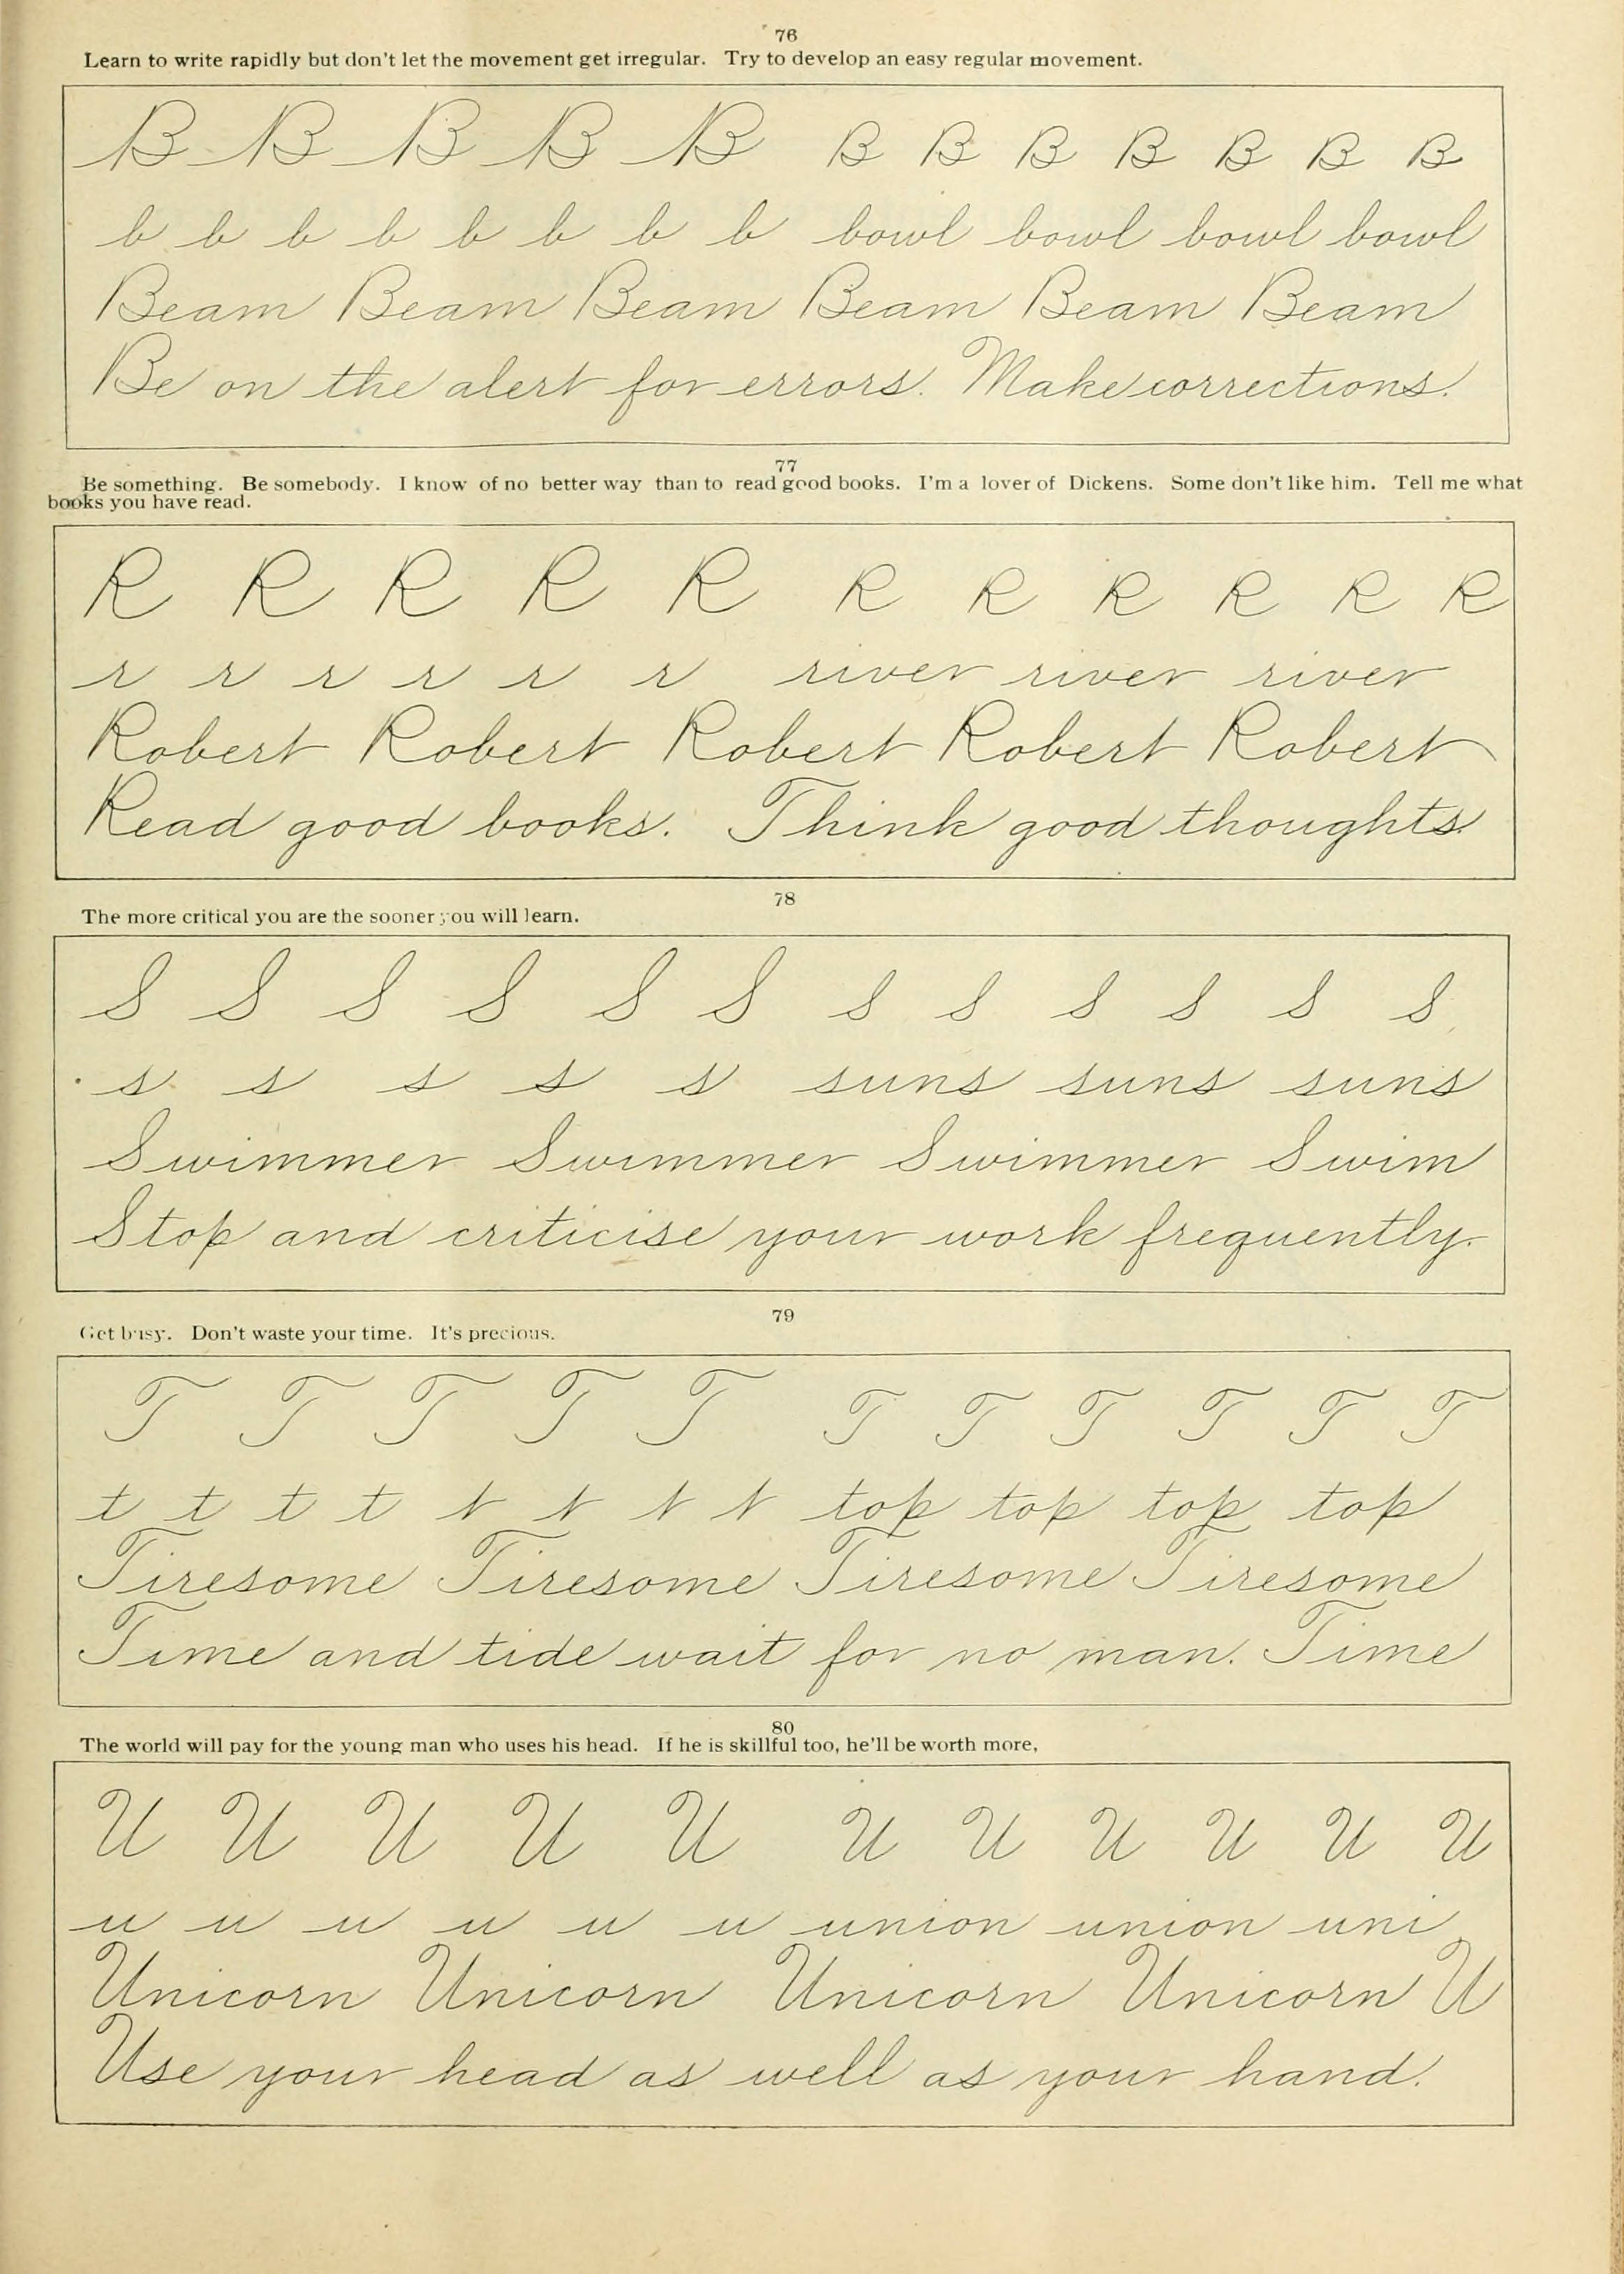 76
Learn to write rapidly but don't let the movement get irregular. Try to develop an easy regular movement.
B B B B B B B B B B B B
b b b b b b b b bowl bowl bowl bowl
Beam Beam Beam Beam Beam Beam
Be on the alert for errors. Make corrections.
77
Be something. Be somebody. I know of no better way than to read good books. I'm a lover of Dickens. Some don't like him. Tell me what
books you have read.
R R R R R R R R R R R
r r r r r r river river river
Robert Robert Robert Robert Robert
Read good books. Think good thoughts.
78
The more critical you are the sooner you will learn.
S S S S S S S S S S S S
s s s s s suns suns suns
Swimmer Swimmer Swimmer Swim
Stop and criticise your work frequently.
79
Get busy. Don't waste your time. It's precious.
T T T T T T T T T T T
t t t t t t t t top top top top
Tiresome Tiresome Tiresome Tiresome
Time and tide wait for no man. Time
80
The world will pay for the young man who uses his head. If he is skillful too, he'll be worth more,
U U U U U U U U U U U
u u u u u u union union uni
Unicorn Unicorn Unicorn Unicorn U
Use your head as well as your hand.